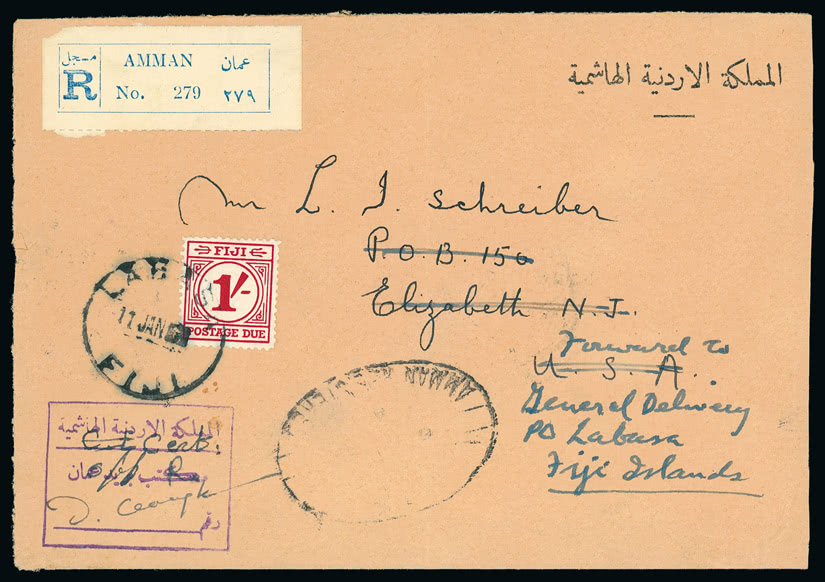 مسجل AMMAN عمان
R No. 279 ٢٧٩
المملكة الاردنية الهاشمية
Mr L. I. Schreiber
P.O.B. 156
Elizabeth N.J.
U. S. A.
Forward to
General Delivery
PO Labasa
Fiji Islands
FIJI
1/-
POSTAGE DUE
LABASA
11 JAN
FIJI
AMMAN
المملكة الاردنية الهاشمية
مكتب بريد عمان
رقم